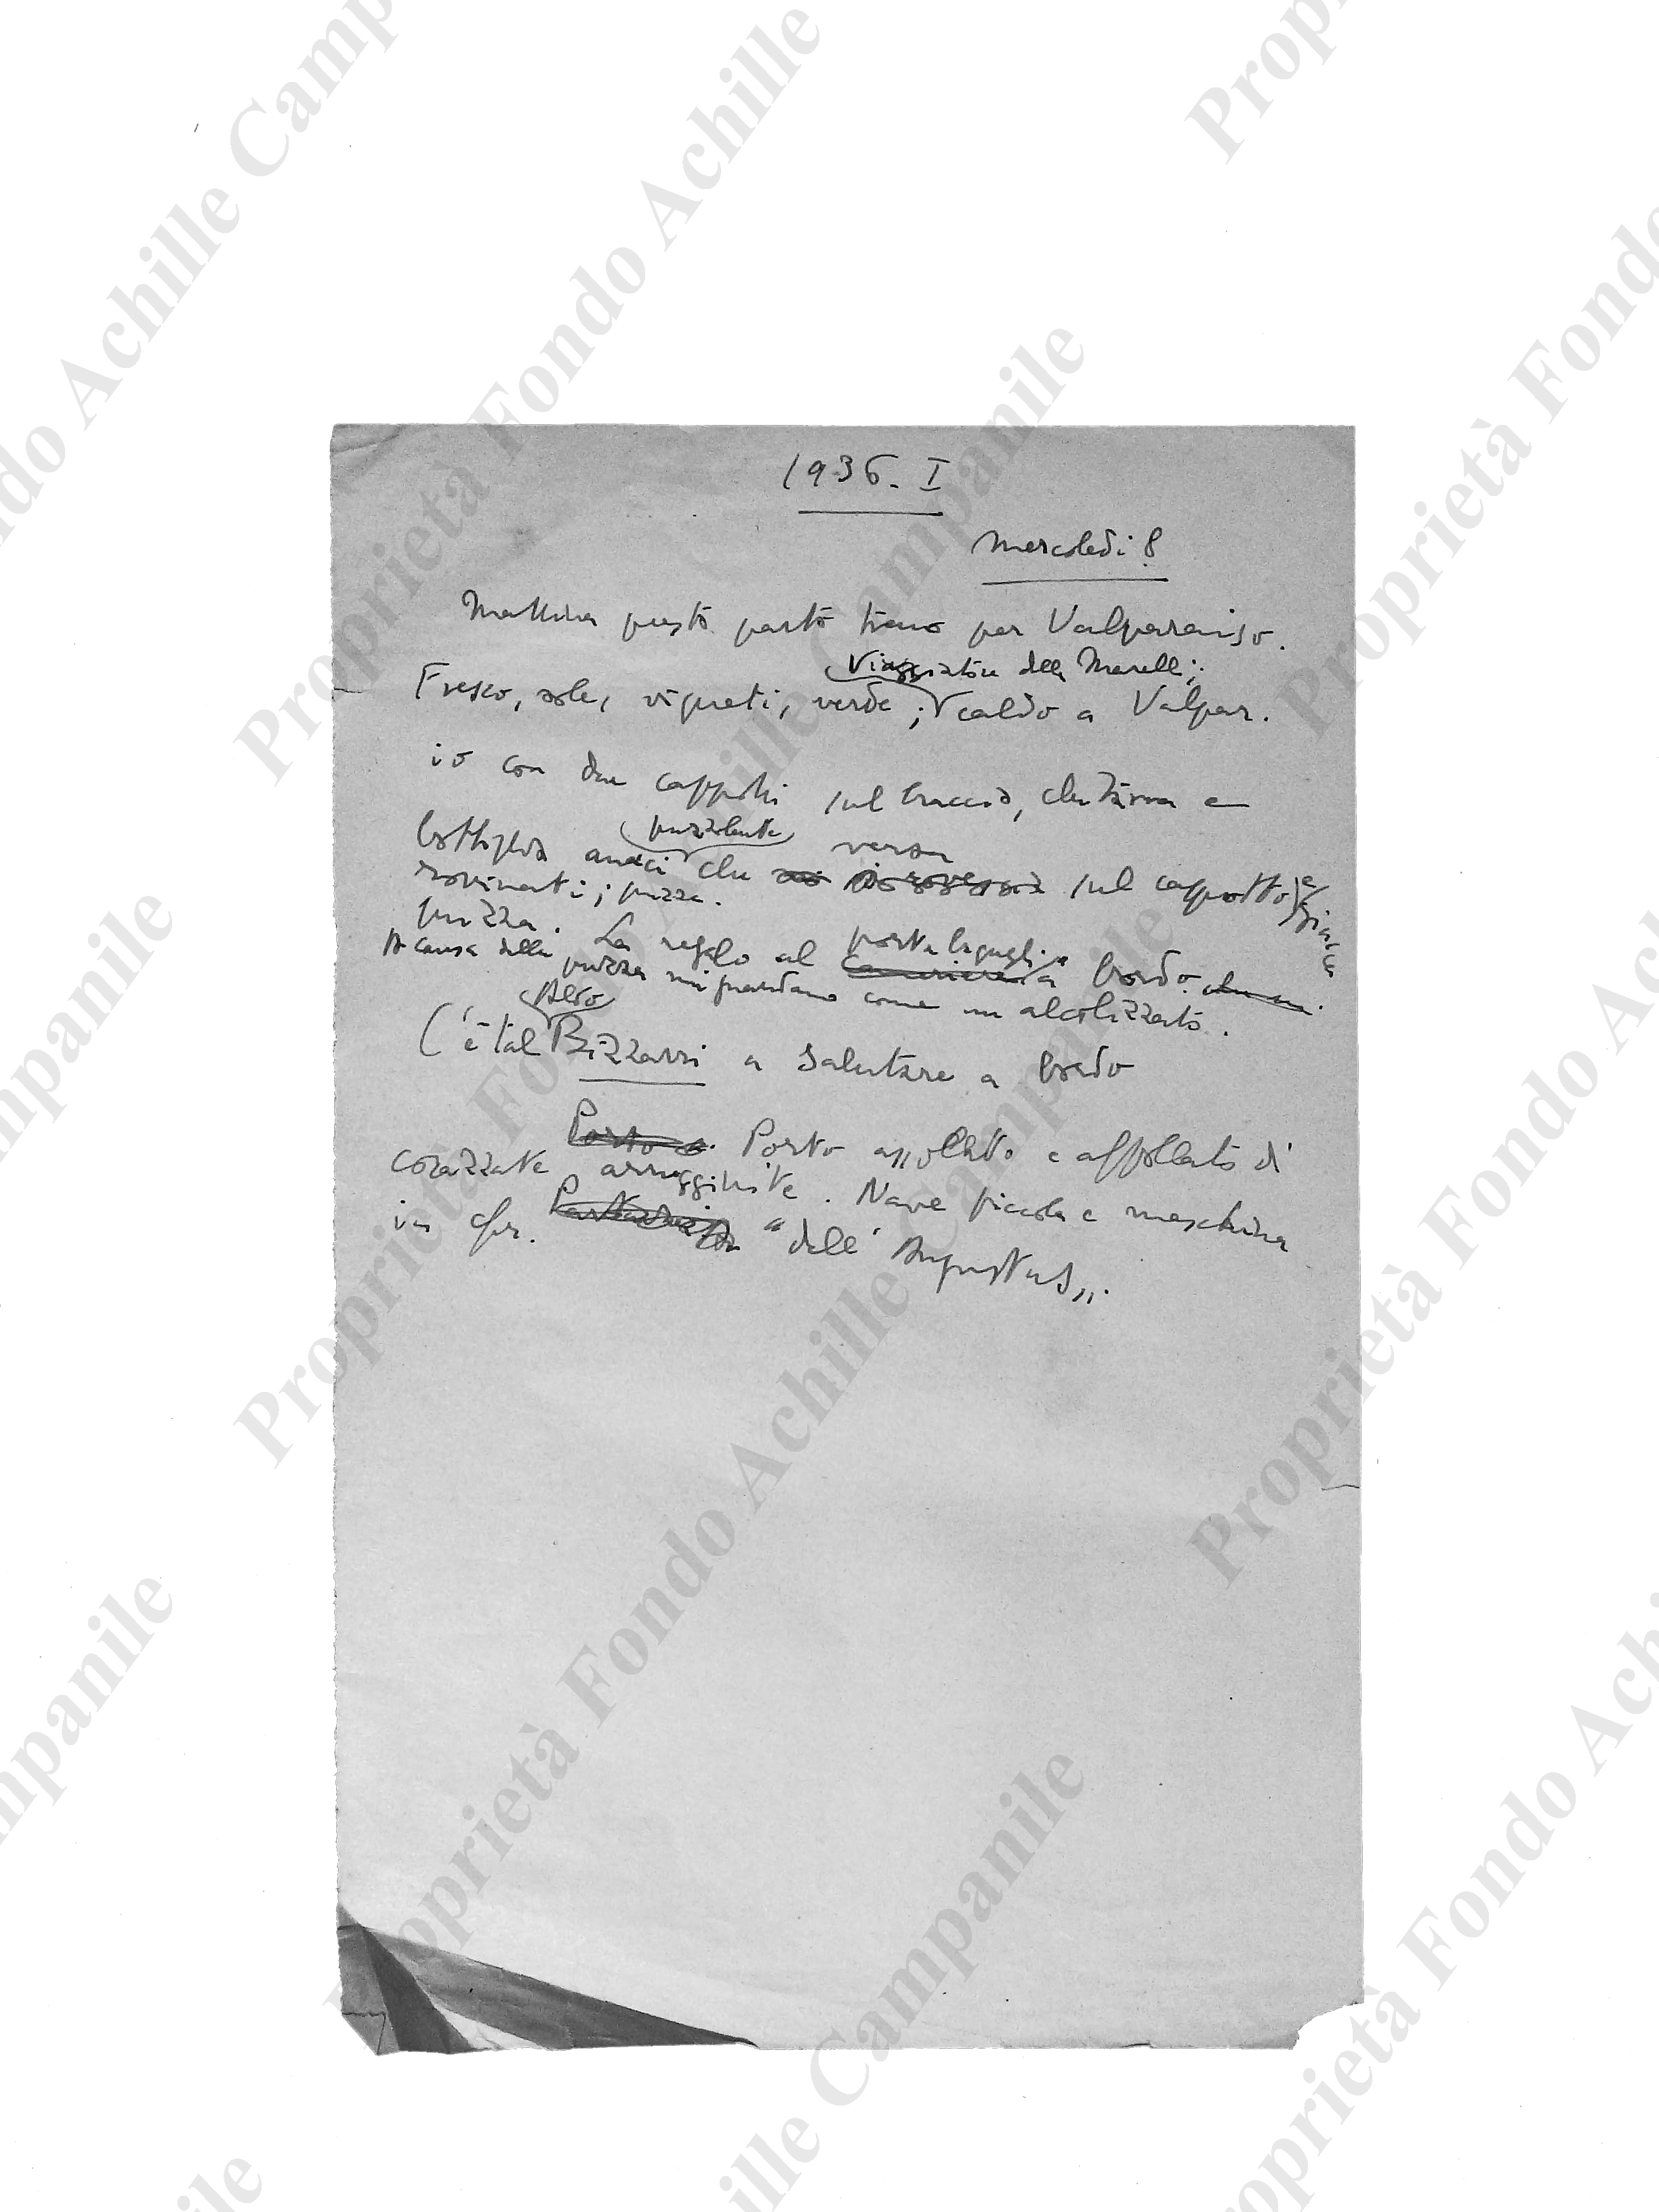 1936. I
Mercoledì 8
Mattina presto parto treno per Valparaiso.
Viaggiatore della Marelli;
Fresco, sole, vigneti, verde; caldo a Valpar.
io con due cappotti sul braccio, chitarra e
puzzolente versa
bottiglia che sul cappotto e giacca
rovinati; puzza.
puzza. La regalo al portabagagli a bordo.
A causa della puzza mi guardano come un alcolizzato.
Aldo
C'è tal Bizzarri a salutare a bordo
Porto Porto affollato di
corazzate arrugginite. Nave piccola e meschina
in cfr. "dell'Augustus".
Proprietà Fondo Achille Campanile